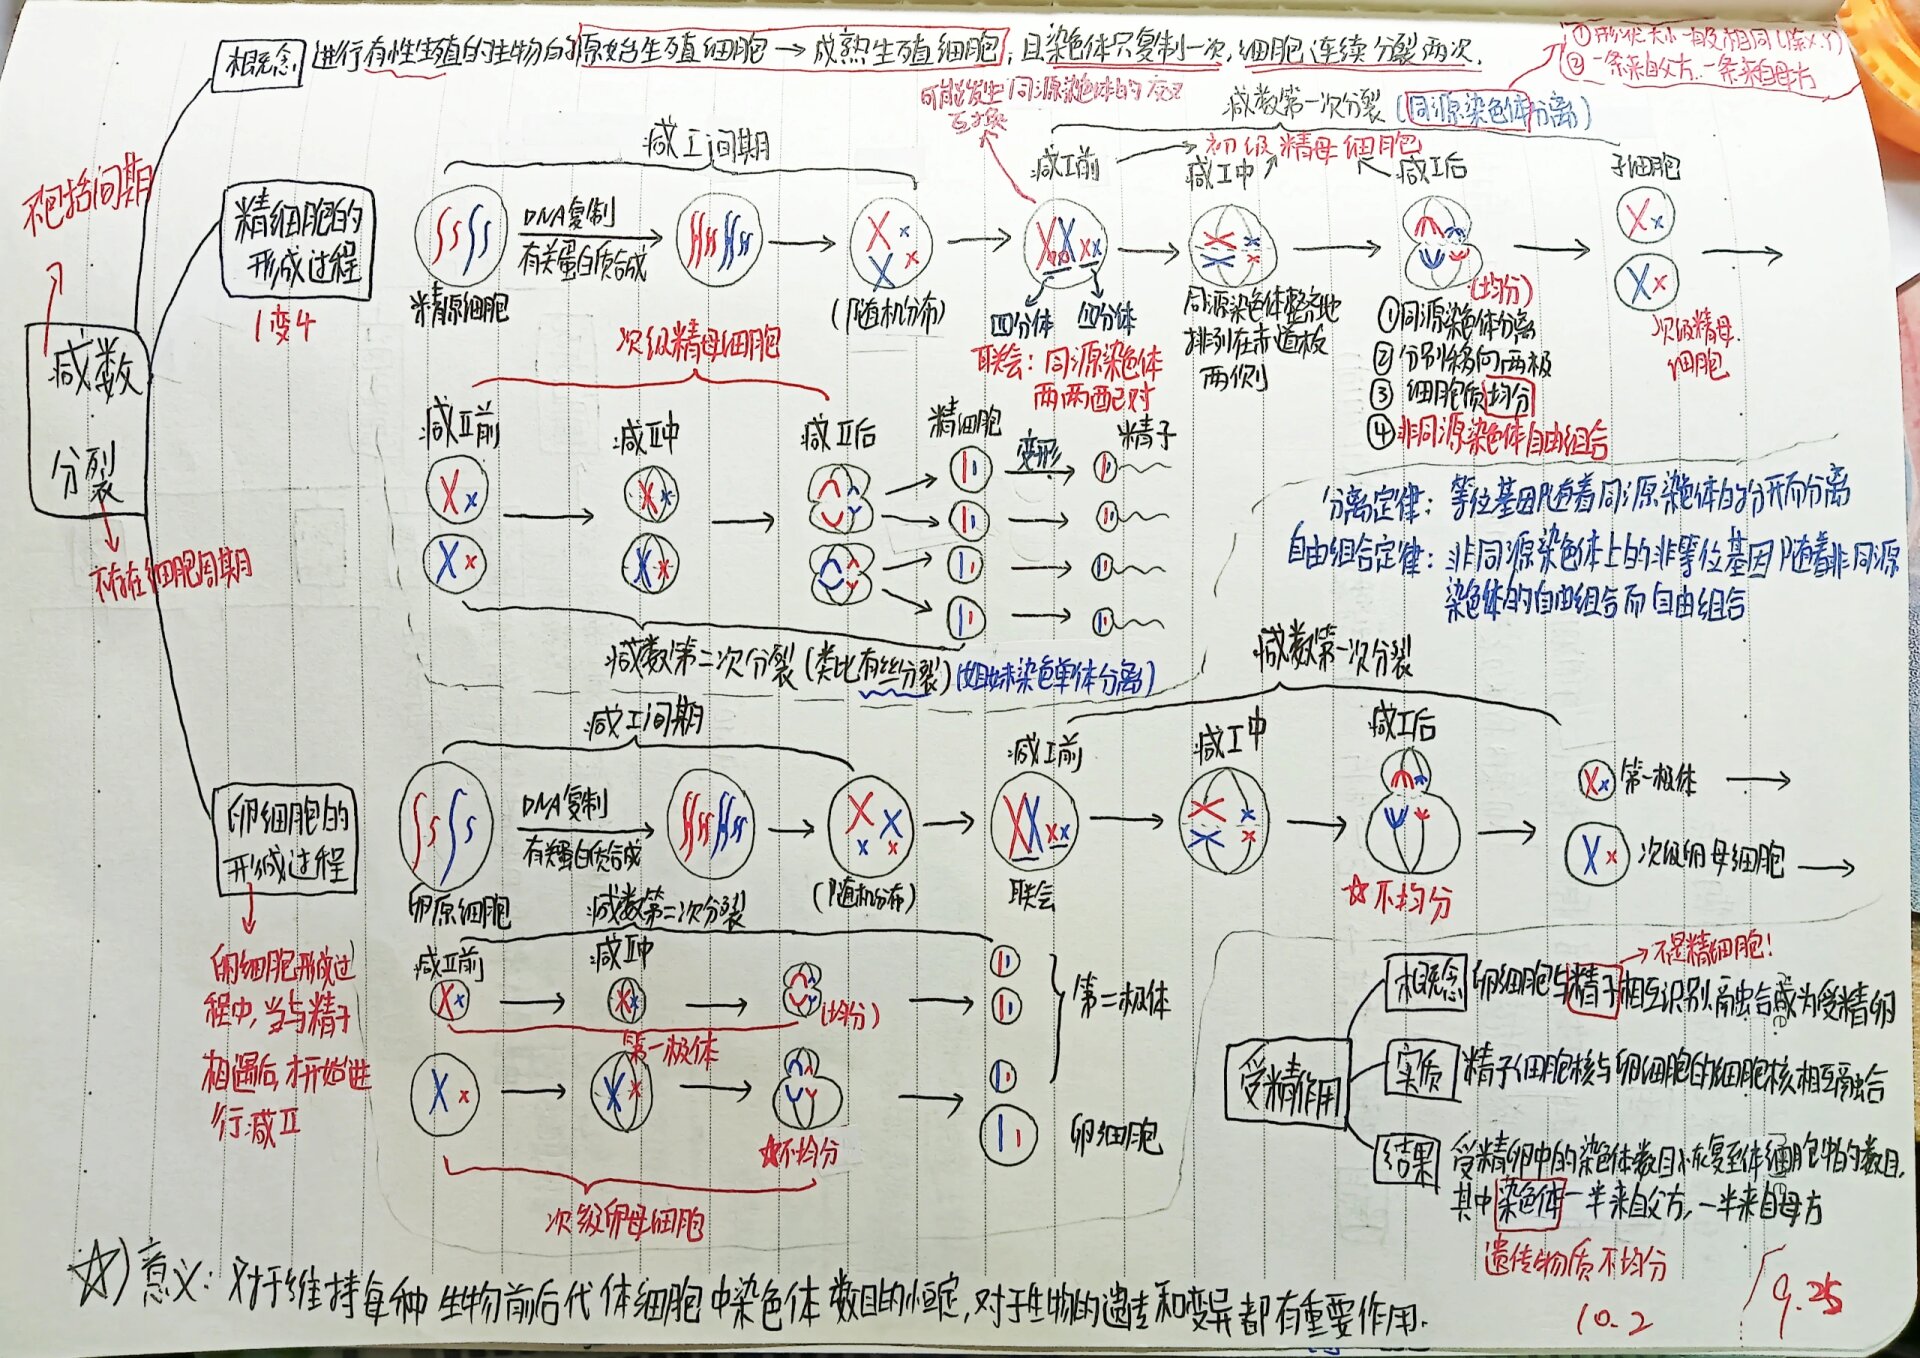 概念
进行有性生殖的生物的原始生殖细胞→成熟生殖细胞,且染色体只复制一次,细胞连续分裂两次.
①形状大小一般相同(除X.Y)
②一条来自父方.一条来自母方
减数第一次分裂(同源染色体分离)
互换
包括间期
减数
分裂
不存在细胞周期
精细胞的
形成过程
1变4
减Ⅰ间期
精原细胞
DNA复制
有关蛋白质合成
(随机分布)
减Ⅰ前
初级精母细胞
减Ⅰ中
减Ⅰ后
子细胞
四分体
四分体
联会:同源染色体
两两配对
同源染色体整齐地
排列在赤道板
两侧
(均分)
①同源染色体分离
②分别移向两极
③细胞质均分
④非同源染色体自由组合
次级精母
细胞
次级精母细胞
减Ⅱ前
减Ⅱ中
减Ⅱ后
精细胞
变形
精子
减数第二次分裂(类比有丝分裂)(姐妹染色单体分离)
分离定律:等位基因随着同源染色体的分开而分离
自由组合定律:非同源染色体上的非等位基因随着非同源
染色体的自由组合而自由组合
卵细胞的
形成过程
卵细胞形成过
程中,当与精子
相遇后,才开始进
行减Ⅱ
减Ⅰ间期
卵原细胞
DNA复制
有关蛋白质合成
(随机分布)
减数第一次分裂
减Ⅰ前
联会
减Ⅰ中
减Ⅰ后
☆不均分
第一极体
次级卵母细胞
减数第二次分裂
减Ⅱ前
减Ⅱ中
(均分)
第一极体
第二极体
☆不均分
卵细胞
次级卵母细胞
受精作用
概念
卵细胞与精子相互识别、融合成为受精卵
→不是精细胞!
实质
精子细胞核与卵细胞的细胞核相互融合
结果
受精卵中的染色体数目恢复至体细胞中的数目,
其中染色体一半来自父方,一半来自母方
遗传物质不均分
☆)意义:对于维持每种生物前后代体细胞中染色体数目的恒定,对于生物的遗传和变异都有重要作用.
10.2
9.25